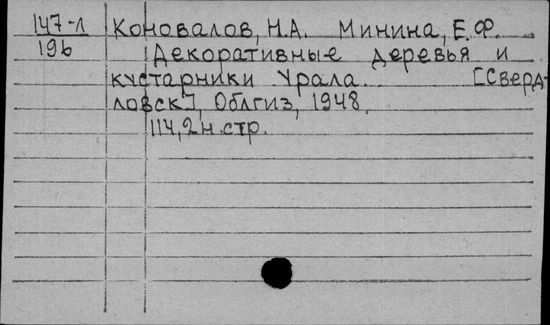 147-л Коновалов, Н.А. Минина, Е.Ф.
196 Декоративные деревья и
кустарники Урала... [Сверд-
ловск], Облгиз, 1948.
114,2н.стр.